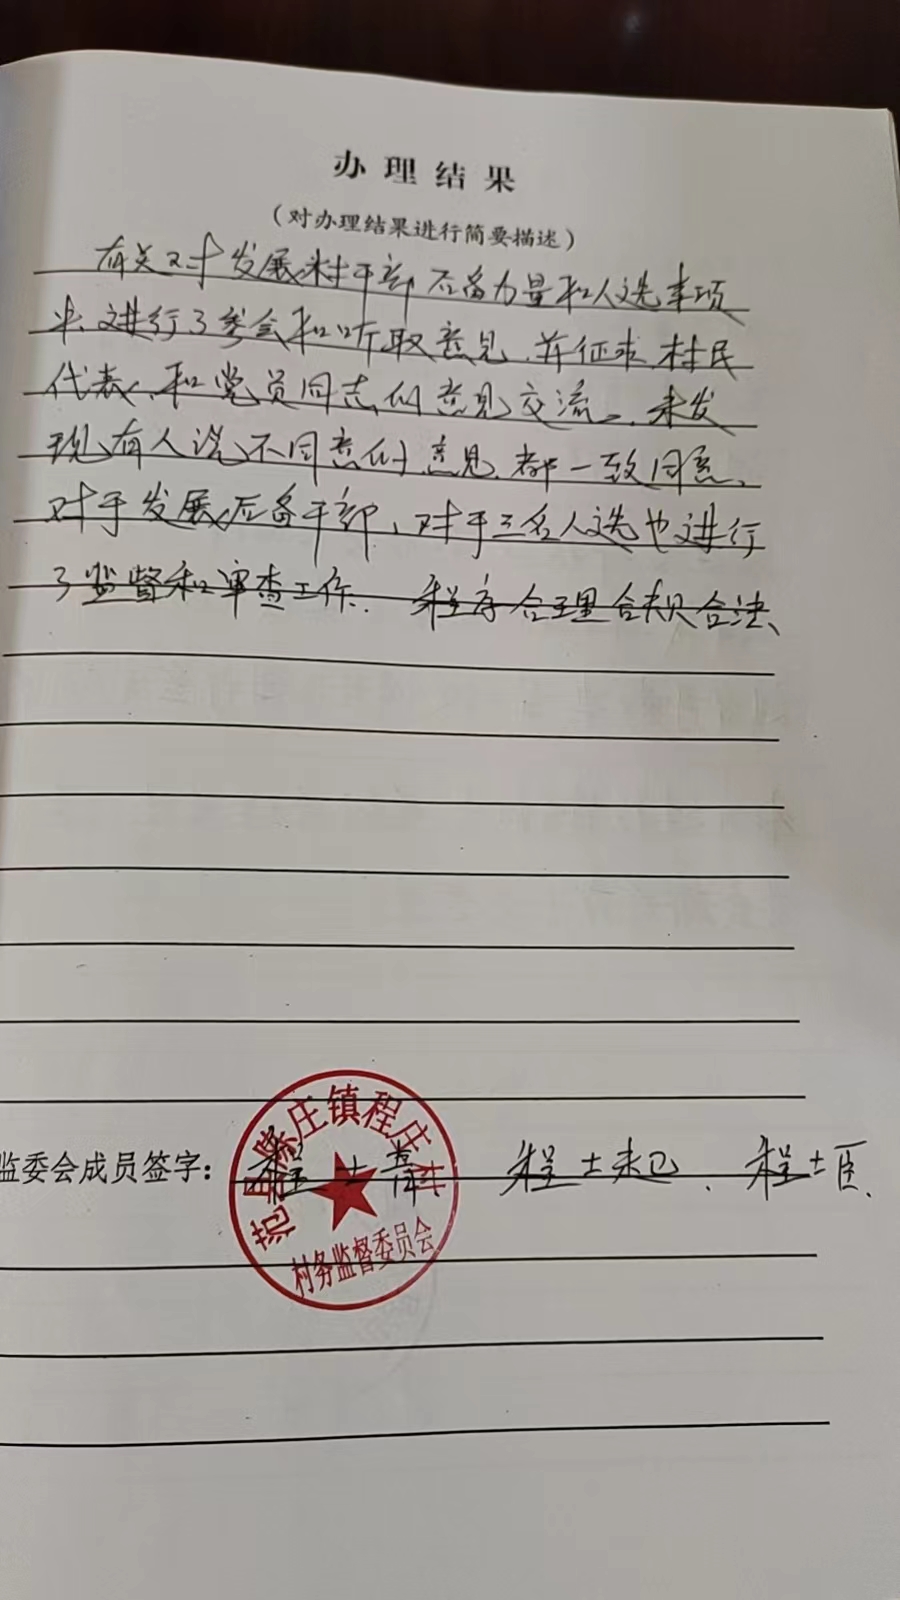 办理结果
（对办理结果进行简要描述）
有关对于发展村干部后备力量和人选事项
进行了参会和听取意见、并征求村民
代表、和党员同志们意见交流。未发
现有人说不同意的意见、都一致同意。
对于发展后备干部、对于三名人选也进行
了监督和审查工作. 程序合理合规合法、
监委会成员签字： 程士 程士 程士臣、
范县陈庄镇程庄村
村务监督委员会